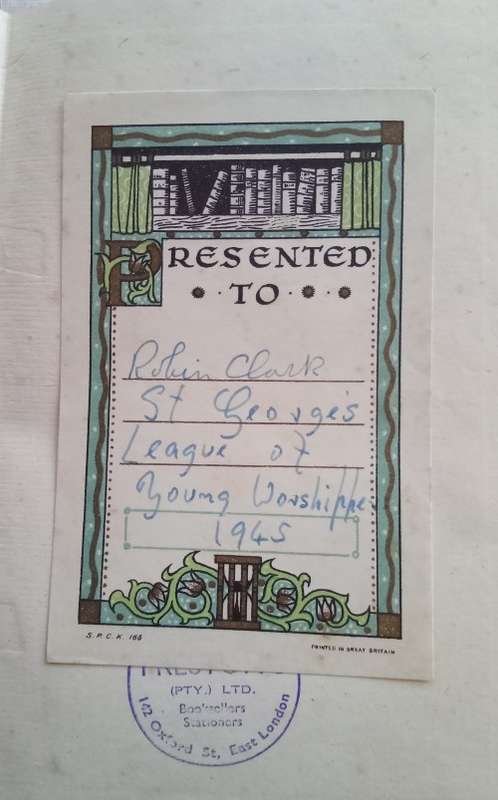 PRESENTED
TO
Robin Clark
St George's
League of
Young Worshippe
1945
S.P.C.K. 166
PRINTED IN GREAT BRITAIN
(PTY.) LTD.
Booksellers
Stationers
142 Oxford St, East London